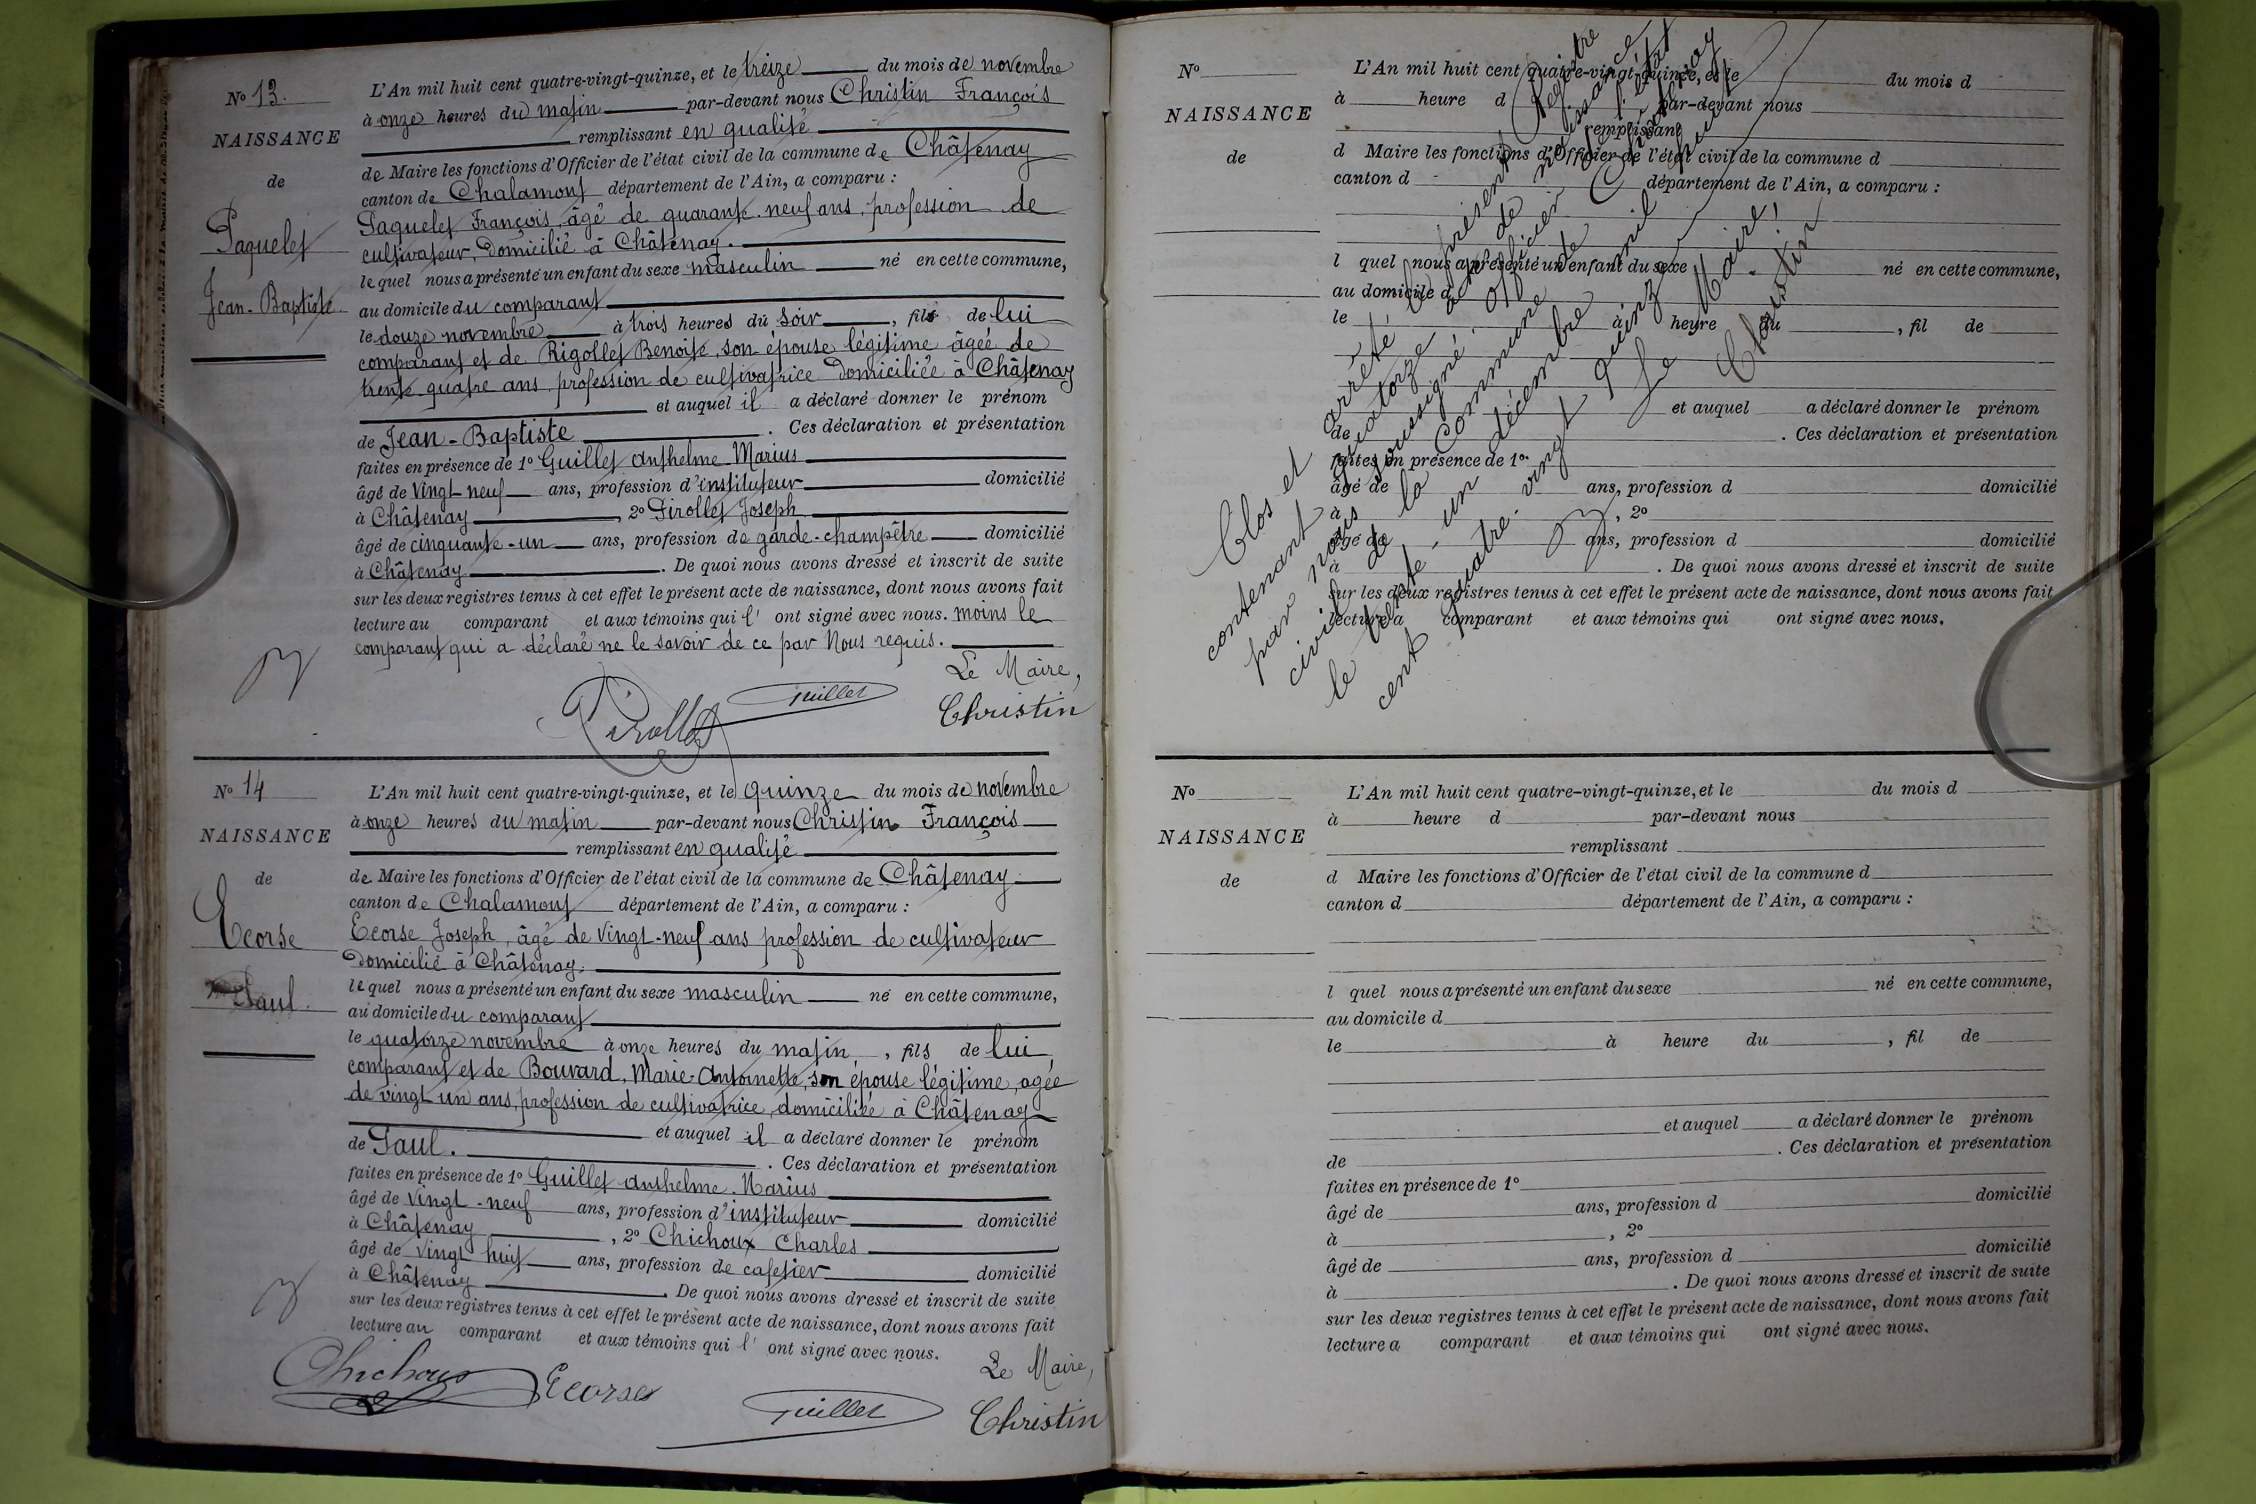 N° 13.
NAISSANCE
de
Paquelet
Jean-Baptiste
L'An mil huit cent quatre-vingt-quinze, et le treize du mois de novembre
à onze heures du matin par-devant nous Christin François
remplissant en qualité
de Maire les fonctions d'Officier de l'état civil de la commune de Châtenay
canton de Chalamont département de l'Ain, a comparu :
Paquelet François, âgé de quarante-neuf ans, profession de
cultivateur, domicilié à Châtenay.
lequel nous a présenté un enfant du sexe masculin né en cette commune,
au domicile du comparant
le douze novembre à trois heures du soir, fils de lui
comparant et de Rigollet Benoite, son épouse légitime âgée de
trente-quatre ans, profession de cultivatrice domiciliée à Châtenay
et auquel il a déclaré donner le prénom
de Jean-Baptiste. Ces déclaration et présentation
faites en présence de 1° Guillet Anthelme Marius
âgé de vingt-neuf ans, profession d'instituteur domicilié
à Châtenay, 2° Pirollet Joseph
âgé de cinquante-un ans, profession de garde-champêtre domicilié
à Châtenay. De quoi nous avons dressé et inscrit de suite
sur les deux registres tenus à cet effet le présent acte de naissance, dont nous avons fait
lecture au comparant et aux témoins qui l' ont signé avec nous. moins le
comparant qui a déclaré ne le savoir de ce par Nous requis.
Le Maire,
Pirollet Guillet Christin
N° 14
NAISSANCE
de
Ecorse
Paul.
L'An mil huit cent quatre-vingt-quinze, et le quinze du mois de novembre
à onze heures du matin par-devant nous Christin François
remplissant en qualité
de Maire les fonctions d'Officier de l'état civil de la commune de Châtenay
canton de Chalamont département de l'Ain, a comparu :
Ecorse Joseph, âgé de vingt-neuf ans profession de cultivateur
domicilié à Châtenay.
lequel nous a présenté un enfant du sexe masculin né en cette commune,
au domicile du comparant
le quatorze novembre à onze heures du matin, fils de lui
comparant et de Bouvard, Marie-Antoinette, son épouse légitime, agée
de vingt un ans, profession de cultivatrice, domiciliée à Châtenay
et auquel il a déclaré donner le prénom
de Paul. Ces déclaration et présentation
faites en présence de 1° Guillet Anthelme. Marius
âgé de vingt-neuf ans, profession d'instituteur domicilié
à Châtenay, 2° Chichoux Charles
âgé de vingt huit ans, profession de cafetier domicilié
à Châtenay. De quoi nous avons dressé et inscrit de suite
sur les deux registres tenus à cet effet le présent acte de naissance, dont nous avons fait
lecture au comparant et aux témoins qui l' ont signé avec nous.
Le Maire,
Chichoux Ecorse Guillet Christin
N°
NAISSANCE
de
L'An mil huit cent quatre-vingt-quinze, et le du mois d
à heure d par-devant nous
remplissant
d Maire les fonctions d'Officier de l'état civil de la commune d
canton d département de l'Ain, a comparu :
l quel nous a présenté un enfant du sexe né en cette commune,
au domicile d
le à heure du , fil de
et auquel a déclaré donner le prénom
de . Ces déclaration et présentation
faites en présence de 1°
âgé de ans, profession d domicilié
à , 2°
âgé de ans, profession d domicilié
à . De quoi nous avons dressé et inscrit de suite
sur les deux registres tenus à cet effet le présent acte de naissance, dont nous avons fait
lecture a comparant et aux témoins qui ont signé avec nous.
Clos et arrêté le présent Registre
contenant quatorze actes de naissance
par nous soussigné, officier de l'état
civil de la Commune de Châtenay
le trente-un décembre mil huit
cent quatre-vingt quinze
Le Maire,
Christin
N°
NAISSANCE
de
L'An mil huit cent quatre-vingt-quinze, et le du mois d
à heure d par-devant nous
remplissant
d Maire les fonctions d'Officier de l'état civil de la commune d
canton d département de l'Ain, a comparu :
l quel nous a présenté un enfant du sexe né en cette commune,
au domicile d
le à heure du , fil de
et auquel a déclaré donner le prénom
de . Ces déclaration et présentation
faites en présence de 1°
âgé de ans, profession d domicilié
à , 2°
âgé de ans, profession d domicilié
à . De quoi nous avons dressé et inscrit de suite
sur les deux registres tenus à cet effet le présent acte de naissance, dont nous avons fait
lecture a comparant et aux témoins qui ont signé avec nous.